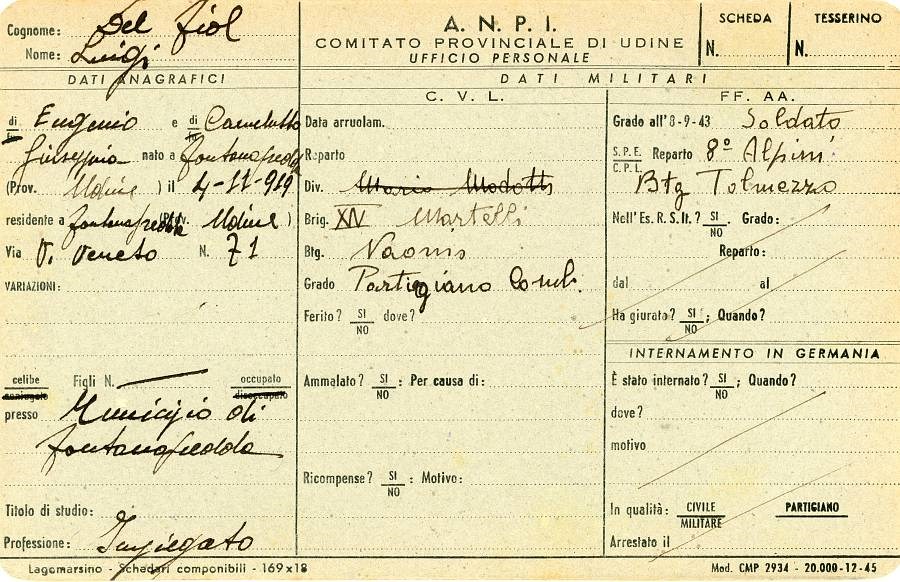 Cognome: Del Fiol
Nome: Luigi
A. N. P. I.
COMITATO PROVINCIALE DI UDINE
UFFICIO PERSONALE
SCHEDA
N.
TESSERINO
N.
DATI ANAGRAFICI
DATI MILITARI
di Eugenio e di
Giuseppina nato a Fontanafredda
(Prov. Udine ) il 4-11-919
residente a Fontanafredda (Prov. Udine )
Via V. Veneto N. 71
VARIAZIONI:
celibe Figli N. occupato
coniugato disoccupato
presso Municipio di
Fontanafredda
Titolo di studio:
Professione: Impiegato
C. V. L.
Data arruolam.
Reparto
Div. Mario Modotti
Brig. XIV Martelli
Btg. Naonis
Grado Partigiano Comb.
Ferito? SI NO dove?
Ammalato? SI NO : Per causa di:
Ricompense? SI NO : Motivo:
FF. AA.
Grado all'8-9-43 Soldato
S.P.E. C.P.L. Reparto 8º Alpini
Btg Tolmezzo
Nell'Es. R. S. It.? SI NO . Grado:
Reparto:
dal al
Ha giurato? SI NO ; Quando?
INTERNAMENTO IN GERMANIA
È stato internato? SI NO ; Quando?
dove?
motivo
In qualità: CIVILE MILITARE PARTIGIANO
Arrestato il
Lagomarsino - Schedari componibili - 169x18
Mod. CMP 2934 - 20.000-12-45